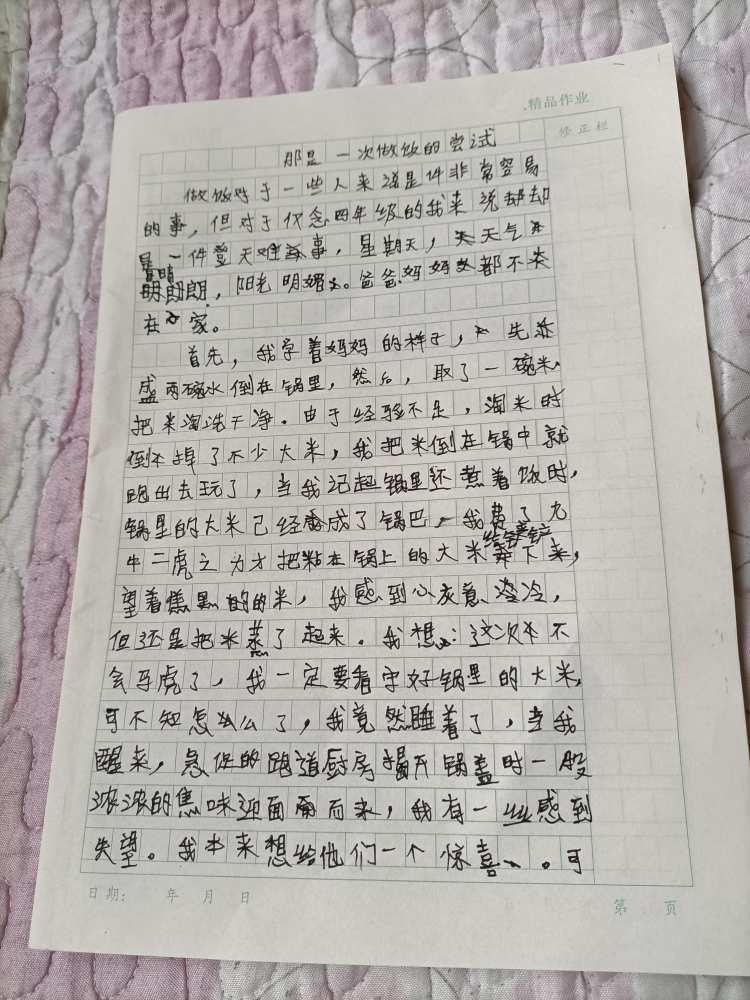 精品作业
修正栏
那是一次做饭的尝试
做饭对于一些人来说是件非常容易
的事，但对于仅念四年级的我来说却却
是一件登天难事，星期天，天气
晴朗朗，阳光明媚。爸爸妈妈都不
在家。
首先，我学着妈妈的样子，先
盛两碗水倒在锅里，然后，取了一碗米，
把米淘洗干净。由于经验不足，淘米时
倒掉了不少大米，我把米倒在锅中就
跑出去玩了，当我记起锅里还煮着饭时，
锅里的大米已经成了锅巴，我费了九
牛二虎之力才把粘在锅上的大米给铲下来，
望着焦黑的的米，我感到心灰意冷，
但还是把米蒸了起来。我想：这次不
会马虎了，我一定要看守好锅里的大米，
可不知怎么了，我竟然睡着了，当我
醒来，急促的跑道厨房揭开锅盖时一股
浓浓的焦味迎面而来，我有一些感到
失望。我本来想给他们一个惊喜。可
日期： 年 月 日
第 页